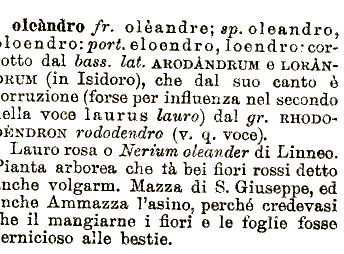 oleàndro fr. olèandre; sp. oleandro,
loendro: port. eloendro, loendro: cor-
otto dal bass. lat. ARODÀNDRUM e LORÀN-
DRUM (in Isidoro), che dal suo canto è
orruzione (forse per influenza nel secondo
ella voce laurus lauro) dal gr. RHODO-
DÈNDRON rododendro (v. q. voce).
Lauro rosa o Nerium oleander di Linneo.
Pianta arborea che fà bei fiori rossi detto
nche volgarm. Mazza di S. Giuseppe, ed
nche Ammazza l'asino, perché credevasi
he il mangiarne i fiori e le foglie fosse
ernicioso alle bestie.